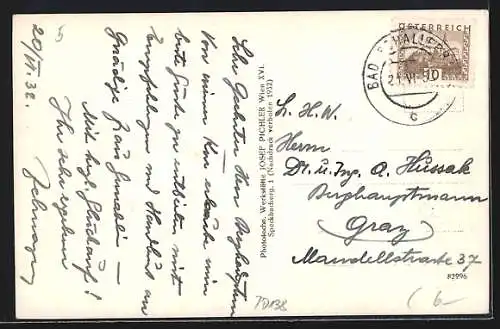 5
20/VI. 32.
Sehr Geehrter Herr Berghauptm
Von meiner Kur erlaube mir
beste Grüße zu entbieten mit
Empfehlungen und Handkuß an
Gnädige Frau Gemahlin —
Mit herzl. Glückauf!
Ihr sehr ergebener
Photochr. Werkstätte JOSEF PICHLER Wien XVI.
Speckbacherg. 1 (Nachdruck verboten 1932)
ÖSTERREICH
10
BAD
21.VI.
c
Herrn
Dr. u. Ing. A. Hussak
Berghauptmann
Graz
Mandellstrasse 37
82996
(6—